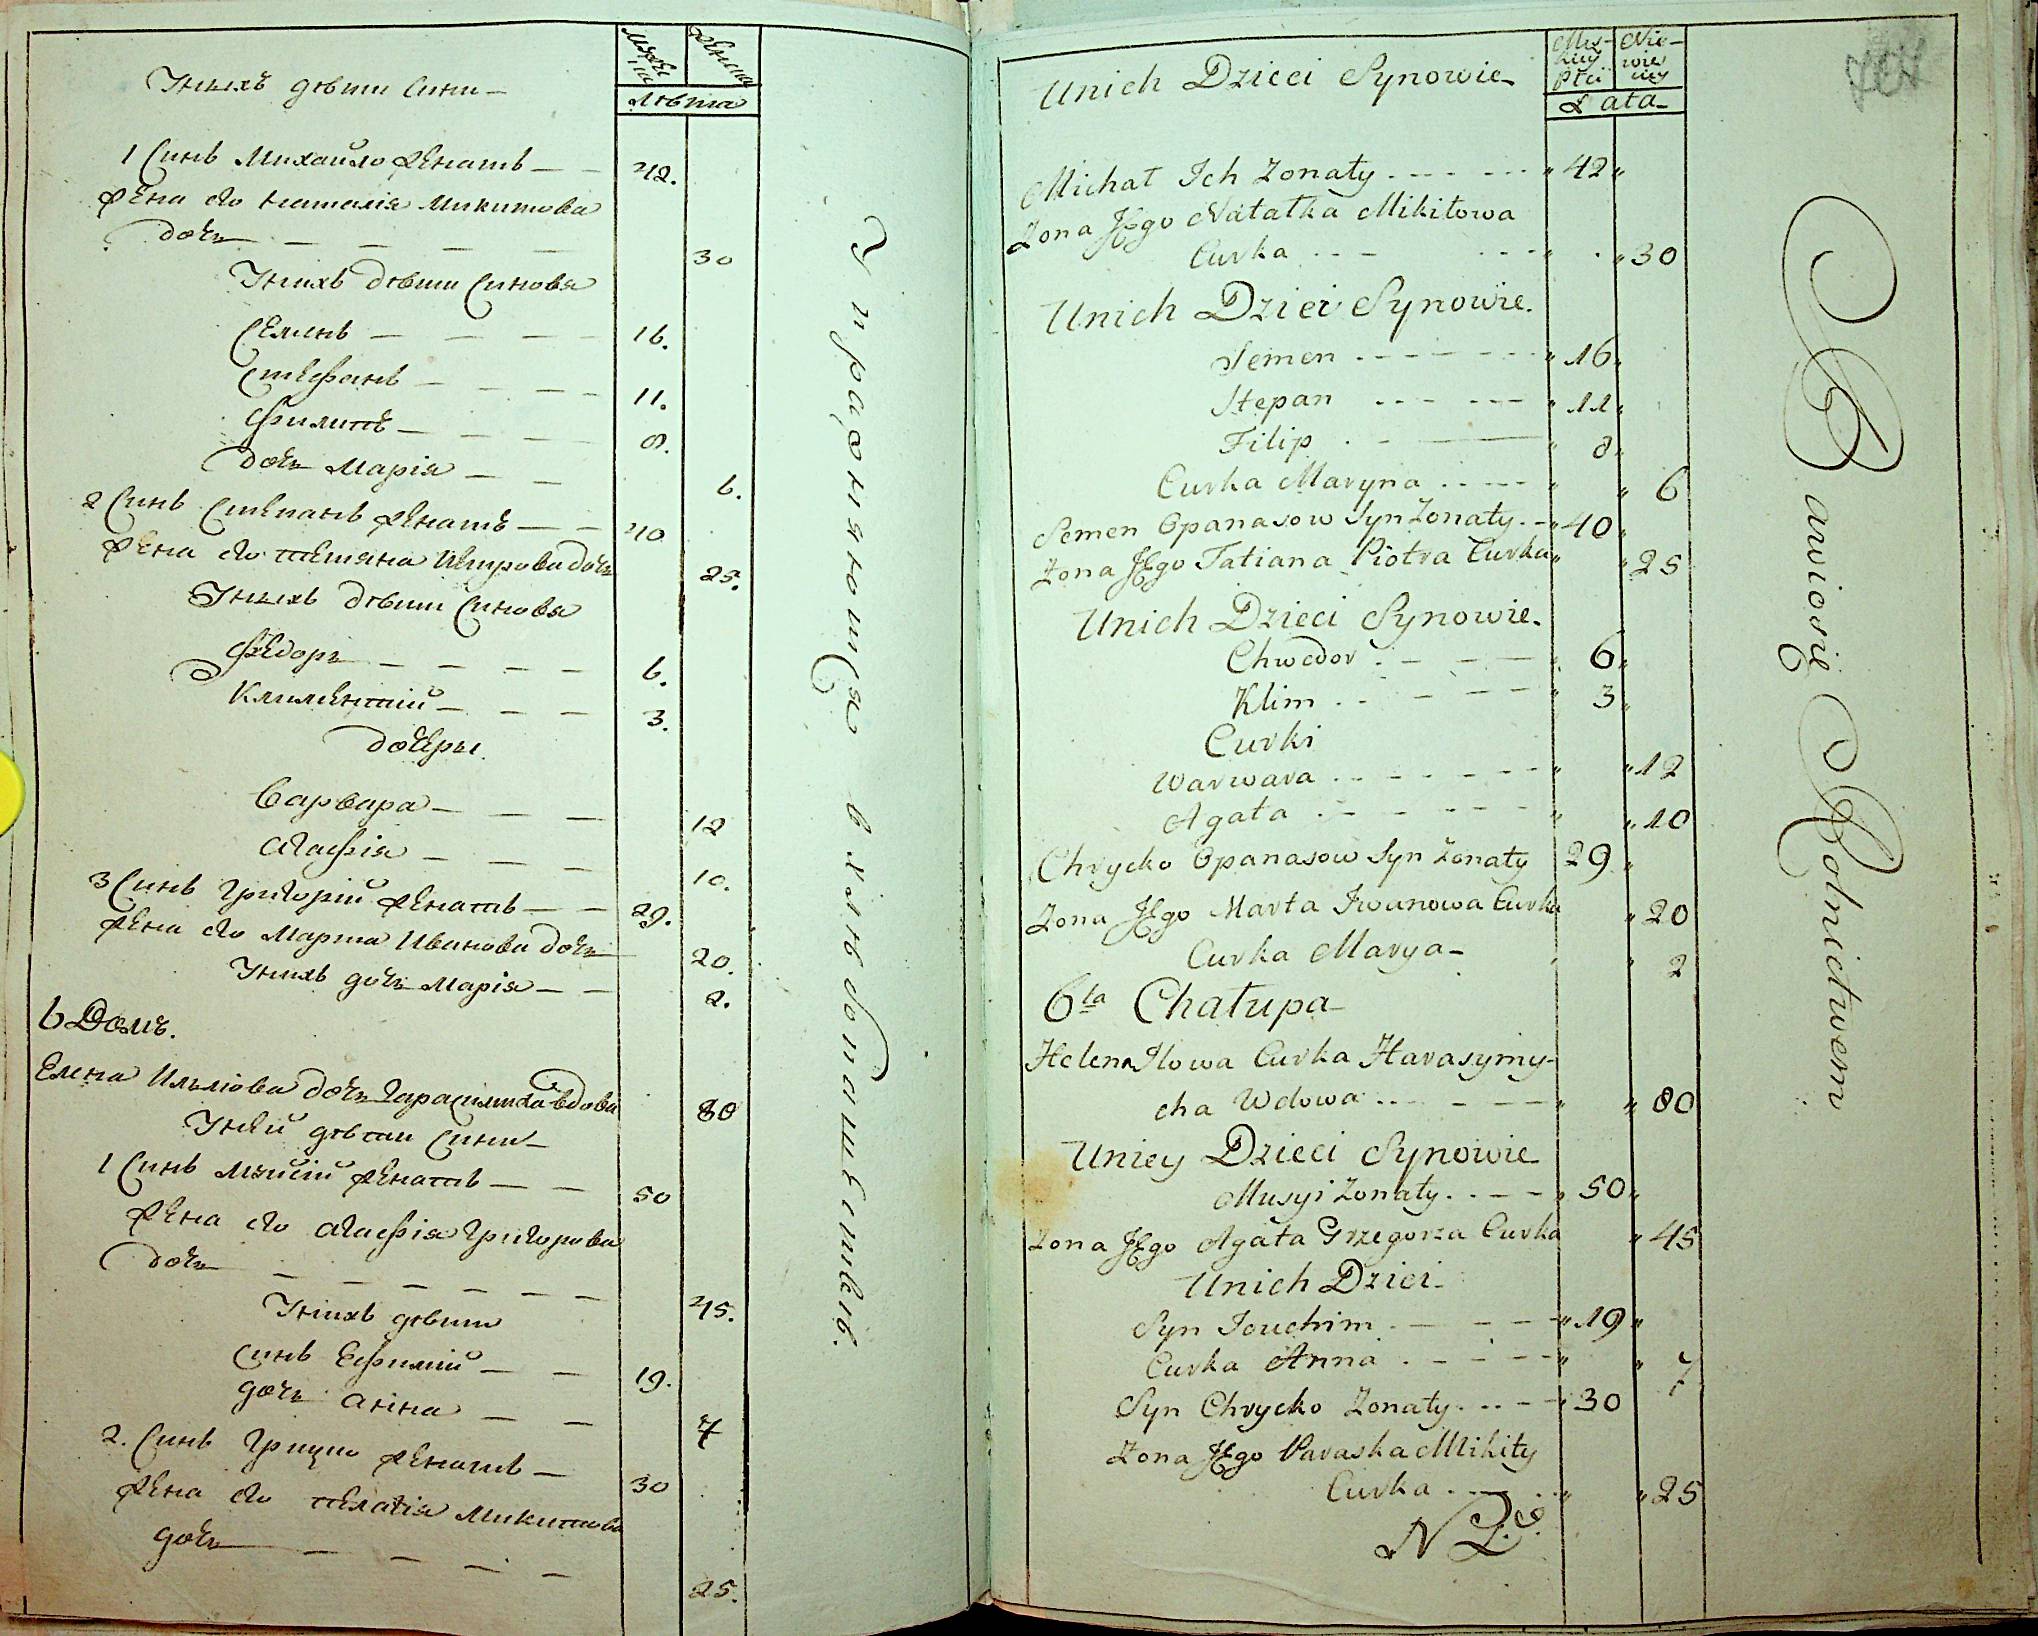 Унихъ дѣти сини
мужеска
женска
лѣта
1 Синъ Михайло женатъ 42.
жена его Наталія Микитова
дочъ 30
Унихъ дѣти Синовя
Семенъ 16.
Стефанъ 11.
Филипъ 8.
дочъ Марія 6.
2 Синъ Степанъ женатъ 40
жена его Тетяна Петрова дочъ 25.
Унихъ дѣти Синовя
Федоръ 6.
Климентій 3.
дочеры
Варвара 12
Агафія 10.
3 Синъ Григорій женатъ 29.
жена его Марта Иванова дочъ 20.
Унихъ дочъ Марія 2.
6 Домъ.
Елена Ильіова дочъ Гарасимиха вдова 80
Уней дѣти Сини
1 Синъ Мусій женатъ 50
жена его Агафія Григорова
дочъ 45.
Унихъ дѣти
Синъ Ефимій 19.
дочъ Анна 7
2. Синъ Грицко женатъ 30
жена его Пелагія Микитова
дочъ 25.
Упражняются в хлѣбопашествѣ.
Unich Dzieci Synowie
Mus-
kiey
Płci
Nie-
wie
ciey
Lata
Michał Ich Żonaty 42
Żona Jego Natałka Mikitowa
Curka 30
Unich Dzieci Synowie.
Semen 16
Stepan 11
Filip 8
Curka Maryna 6
Semen Opanasow Syn Żonaty 40
Żona Jego Tatiana Piotra Curka 25
Unich Dzieci Synowie.
Chwedor 6
Klim 3
Curki
Warwara 12
Agata 10
Chrycko Opanasow Syn Żonaty 29
Żona Jego Marta Iwanowa Curka 20
Curka Marya 2
6ta Chałupa
Helena Ilowa Curka Harasymy-
cha Wdowa 80
Uniey Dzieci Synowie
Musyi Żonaty 50
Żona Jego Agata Grzegorza Curka 45
Unich Dzieci
Syn Jouchim 19
Curka Anna 7
Syn Chrycko Żonaty 30
Żona Jego Paraska Mikity
Curka 25
Bawiosię Rolnictwem